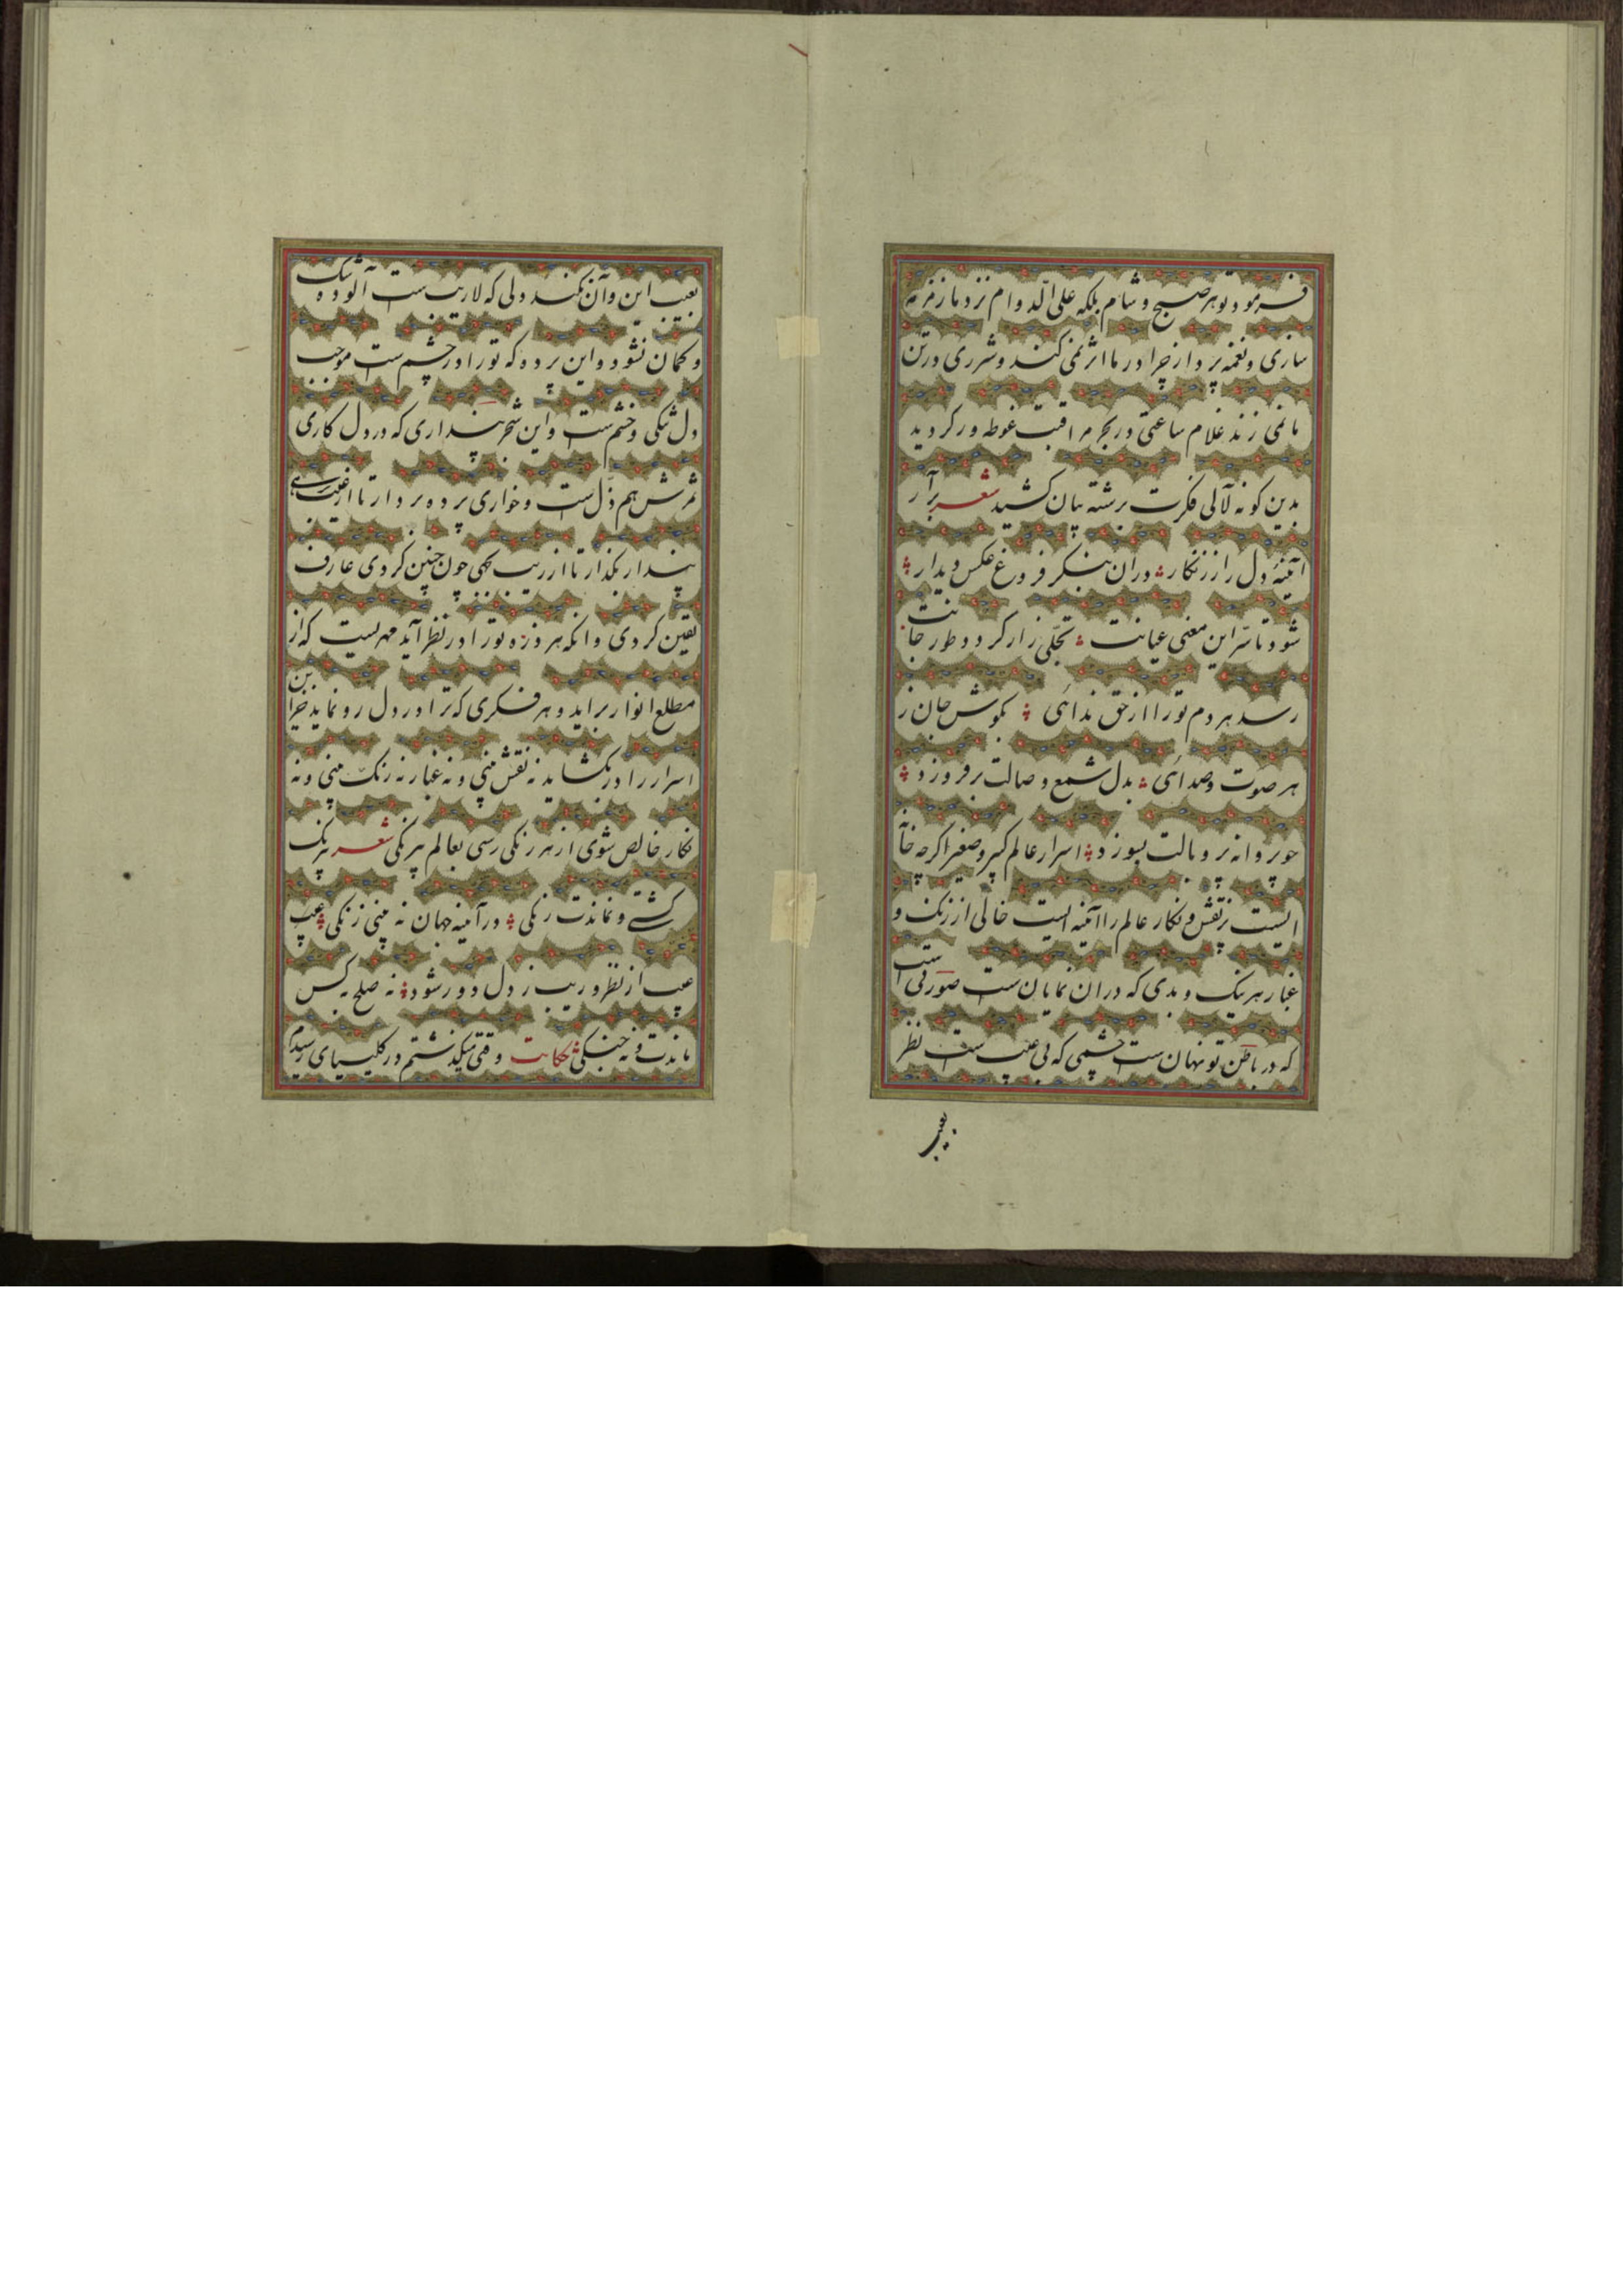 فرمود تو هر صبح و شام بلکه علی الدوام نزد ما زمزمه
سازی و نغمه پردازی چرا در ما اثر نمی کند و شرری در تن
ما نمی زند غلام ساعتی در بحر مراقبت غوطه ور کردید
بدین کونه لآلی فکرت برشته بیان کشید شعر برآر
آئینه دل را ز زنکار در آن بنکر فروغ عکس دیدار
شود تا سر این معنی عیانت تجلی زار کردد طور جانت
رسد هر دم تو را از حق ندائی بکوش جان ز
هر صوت و صدائی بدل شمع وصالت برفروزد
چو پروانه پر و بالت بسوزد اسرار عالم کبیر و صغیر اکرچه خانه
ایست پر نقش و نکار عالم را آئینه ایست خالی از زنک و
غبار هر نیک و بدی که در آن نمایان ست صورتی است
که در باطن تو نهان ست چشمی که بی عیب ست نظر
بعیب
بعیب این و آن نکند دلی که لاریب ست آلوده شک
و کمان نشود و این پرده که تو را در چشم ست موجب
دل تنکی و خشم ست و این شجر پنداری که در دل کاری
ثمرش هم ذل ست و خواری پرده بردار تا از عیب رهی
پندار بکذار تا از ریب بجهی چون چنین کردی عارف
یقین کردی و آنکه هر ذره تو را در نظر آید مهریست که از
مطلع انوار براید و هر فکری که ترا در دل رو نماید خزاین
اسرار را در بکشاید نه نقش بینی و نه غبار نه رنک بینی و نه
نکار خالص شوی از هر رنکی رسی بعالم بیرنکی شعر بیرنک
کشتی و نماندت رنکی در آئینه جهان نه بینی زنکی عیب
عیب از نظر و ریب ز دل دور شود نه صلح به کس
ماندت و نه جنکی حکایت وقتی میکذشتم در کلیسیای رسیدم